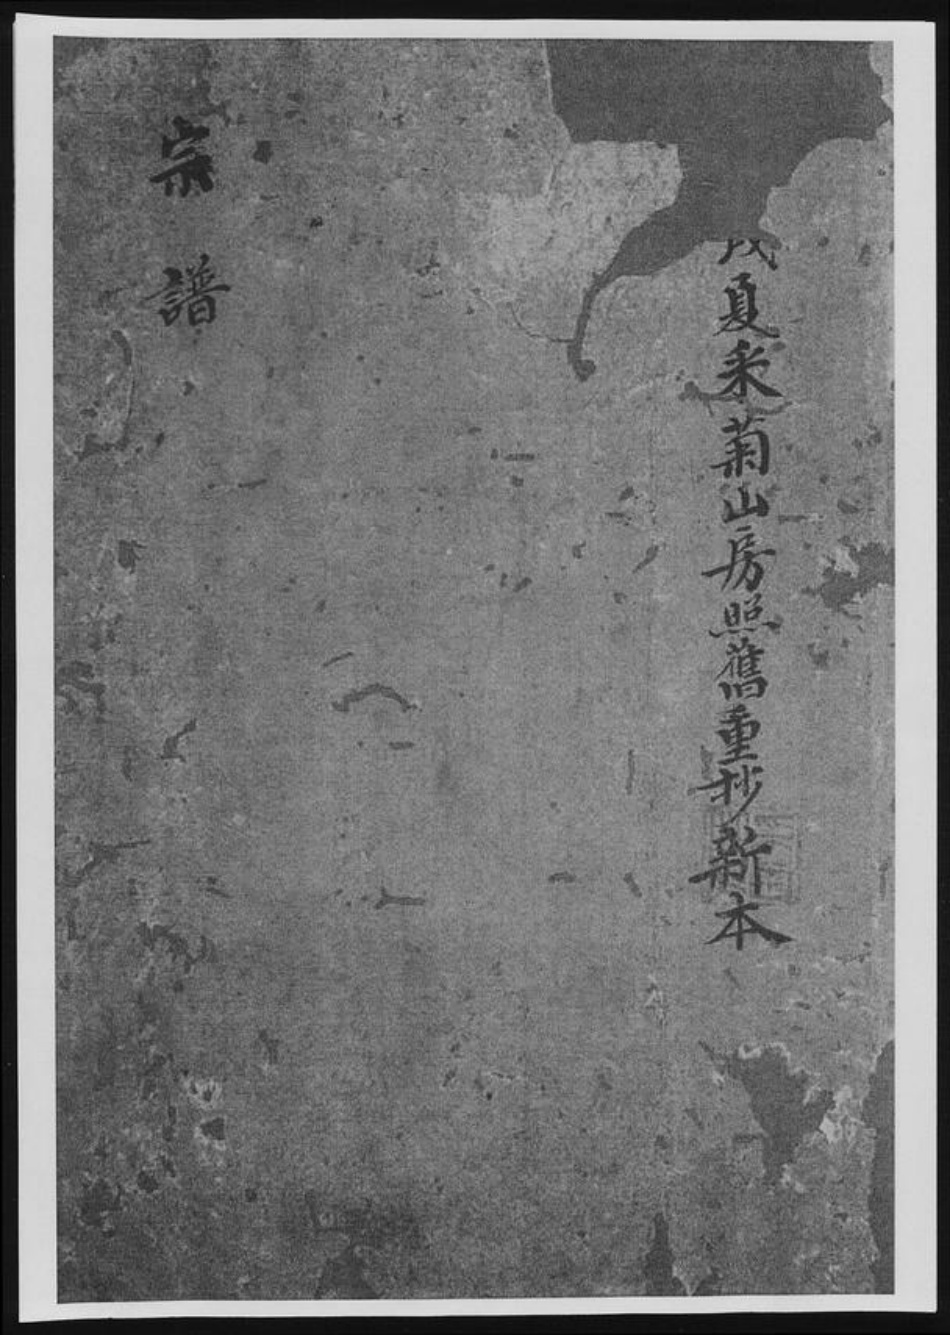 夏采菊山房照舊重抄新本
宗譜